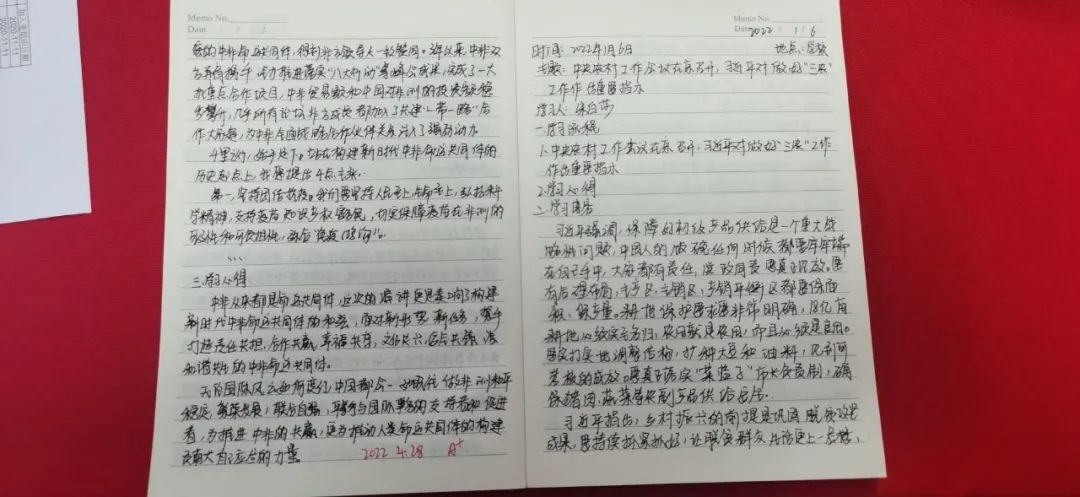 Memo No.
Date / /
要的中非命运共同体，得到非方领导人一致赞同。
三年以来，中非双方并肩携手，全力推进落实"八大行动"等峰会成果，完成了一大
批重点合作项目，中非贸易额和中国对非洲的投资额稳
步攀升，几乎所有论坛非方成员都加入了共建"一带一路"合
作大家庭，为中非全面战略合作伙伴关系注入了强劲动力。
千里之行，始于足下。站在构建新时代中非命运共同体的
历史起点上，我愿提出4点主张：
第一，坚持团结抗疫。我们要坚持人民至上、生命至上，弘扬科
学精神，支持疫苗知识产权豁免，切实保障疫苗在非洲的
可及性和可负担性，弥合"免疫鸿沟"。
…
三.学习心得
中非从来都是命运共同体，这次的演讲
新时代中非命运共同体的和弦，面对新形势新任务，携手
打造责任共担、合作共赢、幸福共享、文化共兴、安全共筑、
和谐共生的中非命运共同体。
无论国际风云如何变幻，中国都会一如既往做非洲和平
稳定、繁荣发展、联合自强、
者，为推进中非的共赢，更为推动人类命运共同体的构建
贡献大自己应有的力量。
2022 4.28 A+
Memo No.
Date 2022 / 1 / 6
时间：2022年1月6日 地点：学校
主题：中央农村工作会议在京召开，习近平对做好"三农"
工作作出重要指示
学习人：
一.学习流程
1.中央农村工作会议在京召开，习近平对做好"三农"工作
作出重要指示
2.学习心得
二.学习内容
习近平强调，保障好初级产品供给是一个重大战
略性问题，中国人的饭碗任何时候都要牢牢端
在自己手中，
有合理布局，主产区、主销区、产销平衡区都要保面
积、保产量。耕地保护要求要非常明确，18亿亩
耕地必须实至名归，农田就是农田，而且必须是良田。
要实打实地调整结构，扩种大豆和油料，见到可
考核的成效。要真正落实"菜篮子"市长负责制，确
保猪肉、蔬菜等农副产品供给安全。
习近平指出，乡村振兴的前提是巩固脱贫攻坚
成果，要持续抓紧抓好，让脱贫群众生活更上一层楼。